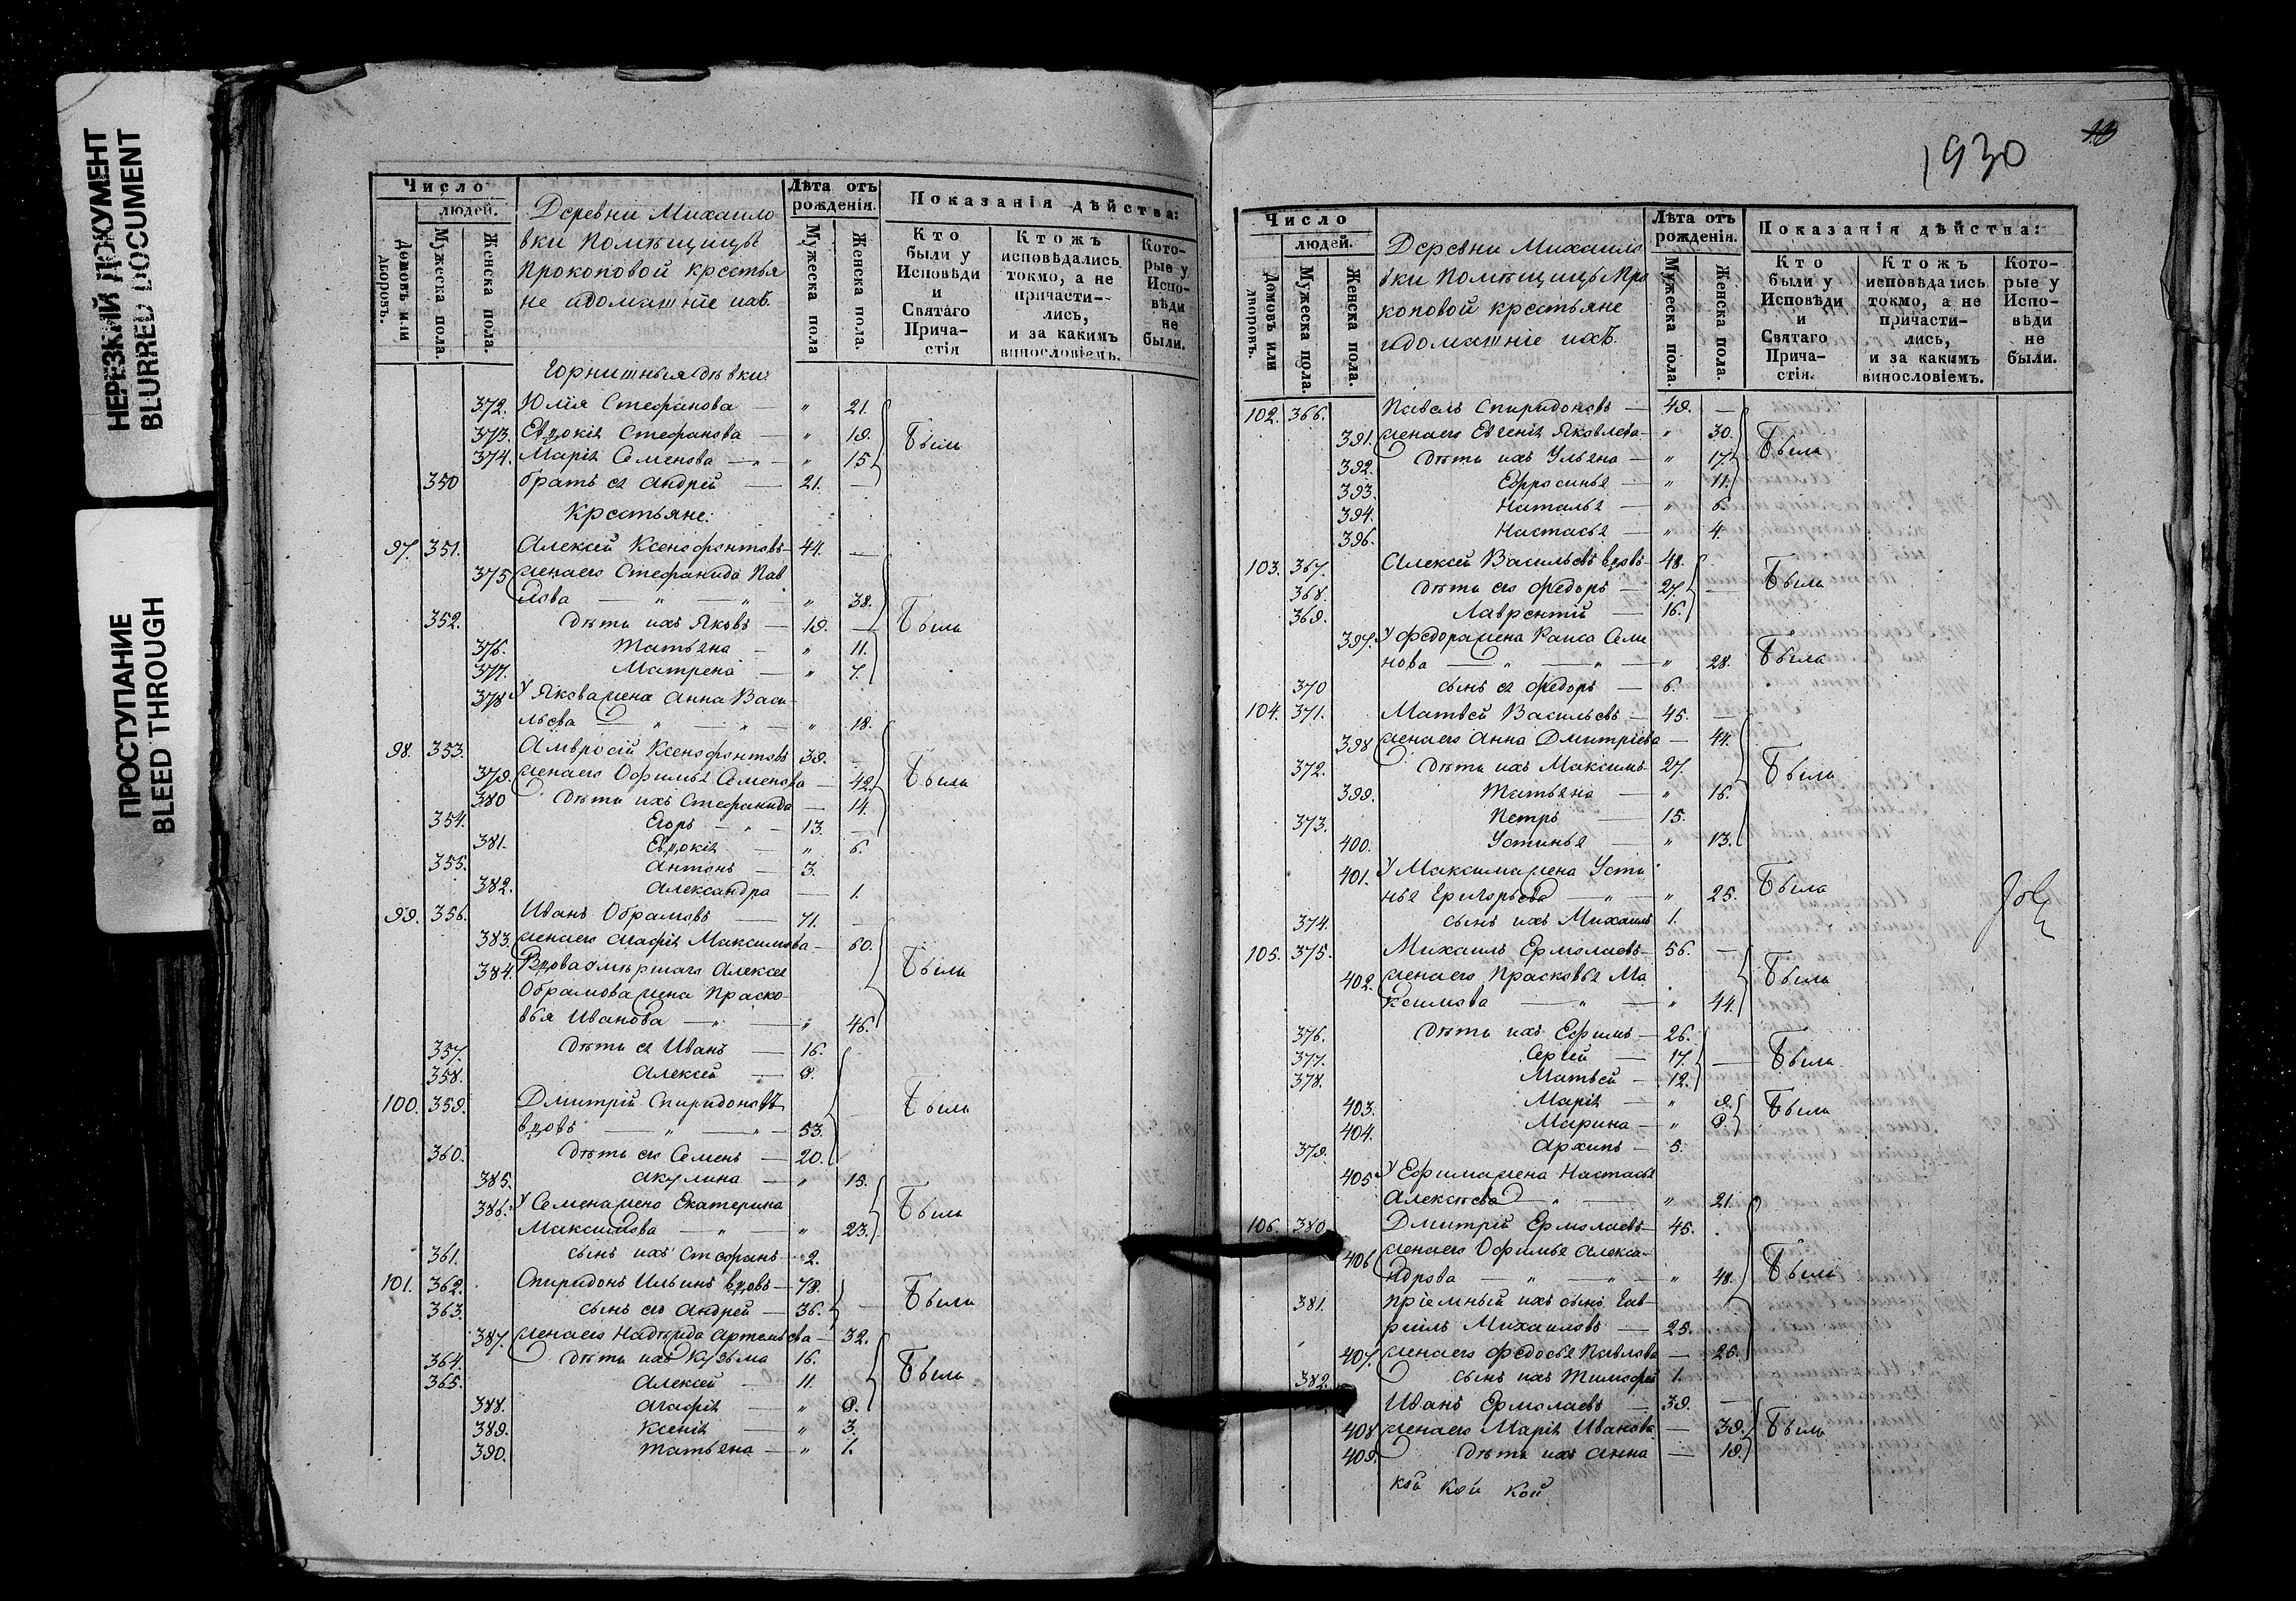 НЕРЕЗКИЙ ДОКУМЕНТ
BLURRED DOCUMENT
ПРОСТУПАНИЕ
BLEED THROUGH
Число
людей.
Домовъ или дворовъ.
Мужеска пола.
Женска пола.
Деревни Михаило
вки Помѣщицы
Прокоповой крестья
не идомашніе ихъ.
Лѣта отъ
рожденія.
Мужеска пола
Женска пола.
Показанія дѣйства:
Кто
были у
Исповѣди
и
Святаго
Прича-
стія
Ктожъ
исповѣдались
токмо, а не
причасти-
лись,
и за какимъ
винословіемъ.
Кото-
рые у
Испо-
вѣди
не
были.
Горнишныя дѣвки:
372. Юлія Стефанова — " 21.
373. Евдокія Стефанова — " 19. Были
374. Марія Семенова — " — " 15.
350 братъ ея Андрей — 21. —
Крестьяне:
97. 351. Алексей Ксенофонтовъ — 44. —
375 Жена его Стефанида Пав
лова — " — " — " 38.
352. Дѣти ихъ Яковъ — 19. — Были
376. Татьяна — " 11.
377. Матрена — " 7.
378 У Якова жена Анна Васи-
льева — " — " — " 18.
98. 353. Амвросій Ксенофонтовъ 39.
379. Жена его Офимья Семенова — 42. Были
380 Дѣти ихъ Стефанида — 14.
354. Егоръ — " — 13. —
381. Евдокія — " 6.
355. Антонъ — 3.
382. Александра — 1.
99. 356. Иванъ Обрамовъ — 71. —
383. Жена его Агафія Максимова — 60.
384. Вдова умершаго Алексея Были
Обрамова жена Праско-
вья Иванова — " — " 46.
357. Дѣти ея Иванъ — 16.
358. Алексей — 8.
100. 359. Дмитрій Спиридоновъ Были
вдовъ — " — " — 53.
360. Дѣти его Семенъ — 20.
385. Акулина — " 15.
386. У Семена жена Екатерина Были
Максимова — " — " 23.
361. сынъ ихъ Стефанъ — 2.
101. 362. Спиридонъ Ильинъ вдовъ — 78.
363. сынъ его Андрей — 36. — Были
387. Жена его Надежда Артемьева — 32.
364. Дѣти ихъ Кузьма 16.
365. Алексей — 11. Были
388. Агафія — " 8.
389. Ксенія — " 3.
390. Татьяна — " 1.
1930
Число
людей.
Домовъ или дворовъ.
Мужеска пола.
Женска пола.
Деревни Михаило
вки Помѣщицы Про
коповой крестьяне
идомашніе ихъ.
Лѣта отъ
рожденія.
Мужеска пола.
Женска пола.
Показанія дѣйства:
Кто
были у
Исповѣди
и
Святаго
Прича-
стія.
Ктожъ
исповѣдались
токмо, а не
причасти-
лись,
и за какимъ
винословіемъ.
Кото-
рые у
Испо-
вѣди
не
были.
102. 366. Павелъ Спиридоновъ — 49. —
391. Жена его Евгенія Яковлева — " 30. Были
392. Дѣти ихъ Ульяна — " 17.
393. Ефросинья — " 11.
394. Наталья — " 6.
396. Настасья — " 4.
103. 367. Алексей Васильевъ вдовъ — 48.
368. Дѣти его Федоръ — 27. — Были
369. Лаврентій — 16.
397. У Федора жена Раиса Семе
нова — " — " — " 28. Была
370 сынъ ея Федоръ — 6.
104. 371. Матвей Васильевъ — 45. —
398 Жена его Анна Дмитріева — 44.
372. Дѣти ихъ Максимъ — 27. Были
399. Татьяна — " 16.
373. Петръ — 15.
400. Устинья — " 13.
401. У Максима жена Усти
нья Григорьева — " — " 25. Была
374. сынъ ихъ Михаилъ 1.
105. 375. Михаилъ Ермолаевъ — 56. —
402. Жена его Прасковья Ма Были
ксимова — " — " 44.
376. Дѣти ихъ Ефимъ — 26.
377. Сергій — 17. — Были
378. Матвей — 12.
403. Марія — " 9. Были
404. Марина — " 8.
379. Архипъ — 5.
405 У Ефима жена Настасья
Алексѣева — " — " 21.
106. 380. Дмитрій Ермолаевъ — 45.
406 Жена его Офимья Алекса-
ндрова — " — " — " 48. Были
381. Пріемный ихъ сынъ Гав-
ріилъ Михаиловъ — 25.
407. Жена его Федосья Павлова — 25.
382. сынъ ихъ Тимофей 1.
Иванъ Ермолаевъ — 39. —
408 Жена его Марія Иванова — 39. Были
409. Дѣти ихъ Анна — 19.
кой кой кой